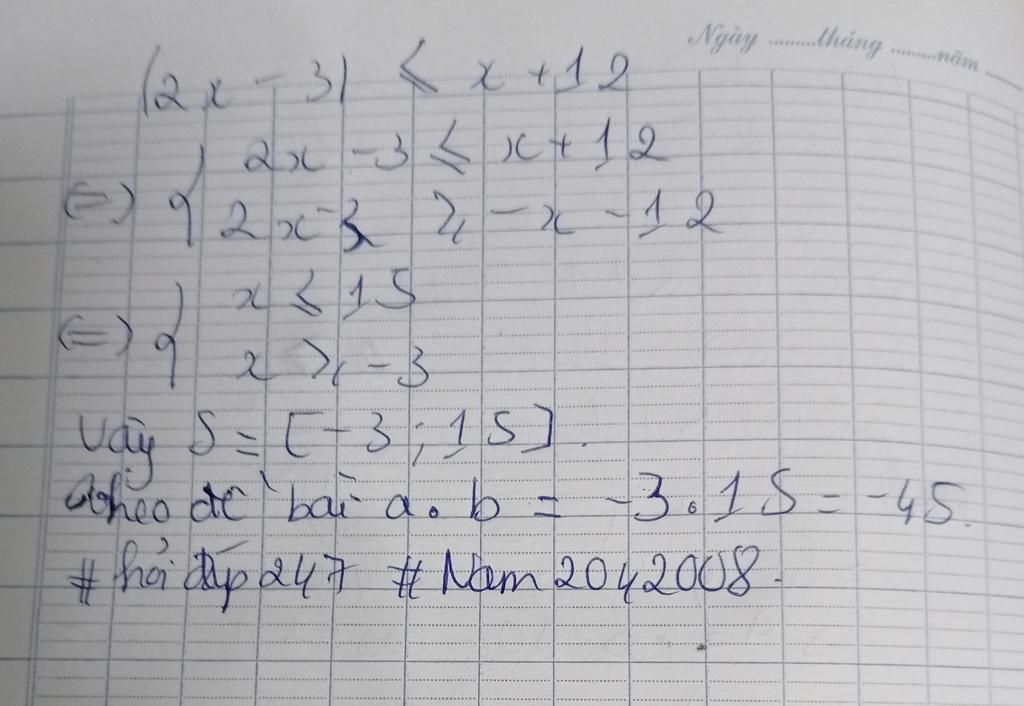 Ngày ......... tháng ......... năm ......
|2x - 3| ⩽ x + 12
⇔ { 2x - 3 ⩽ x + 12
2x - 3 ⩾ - x - 12
⇔ { x ⩽ 15
x ⩾ - 3
Vậy S = [-3 ; 15].
theo đề bài a. b = -3 . 15 = -45.
# hỏi đáp 247 # Nam 2042008.